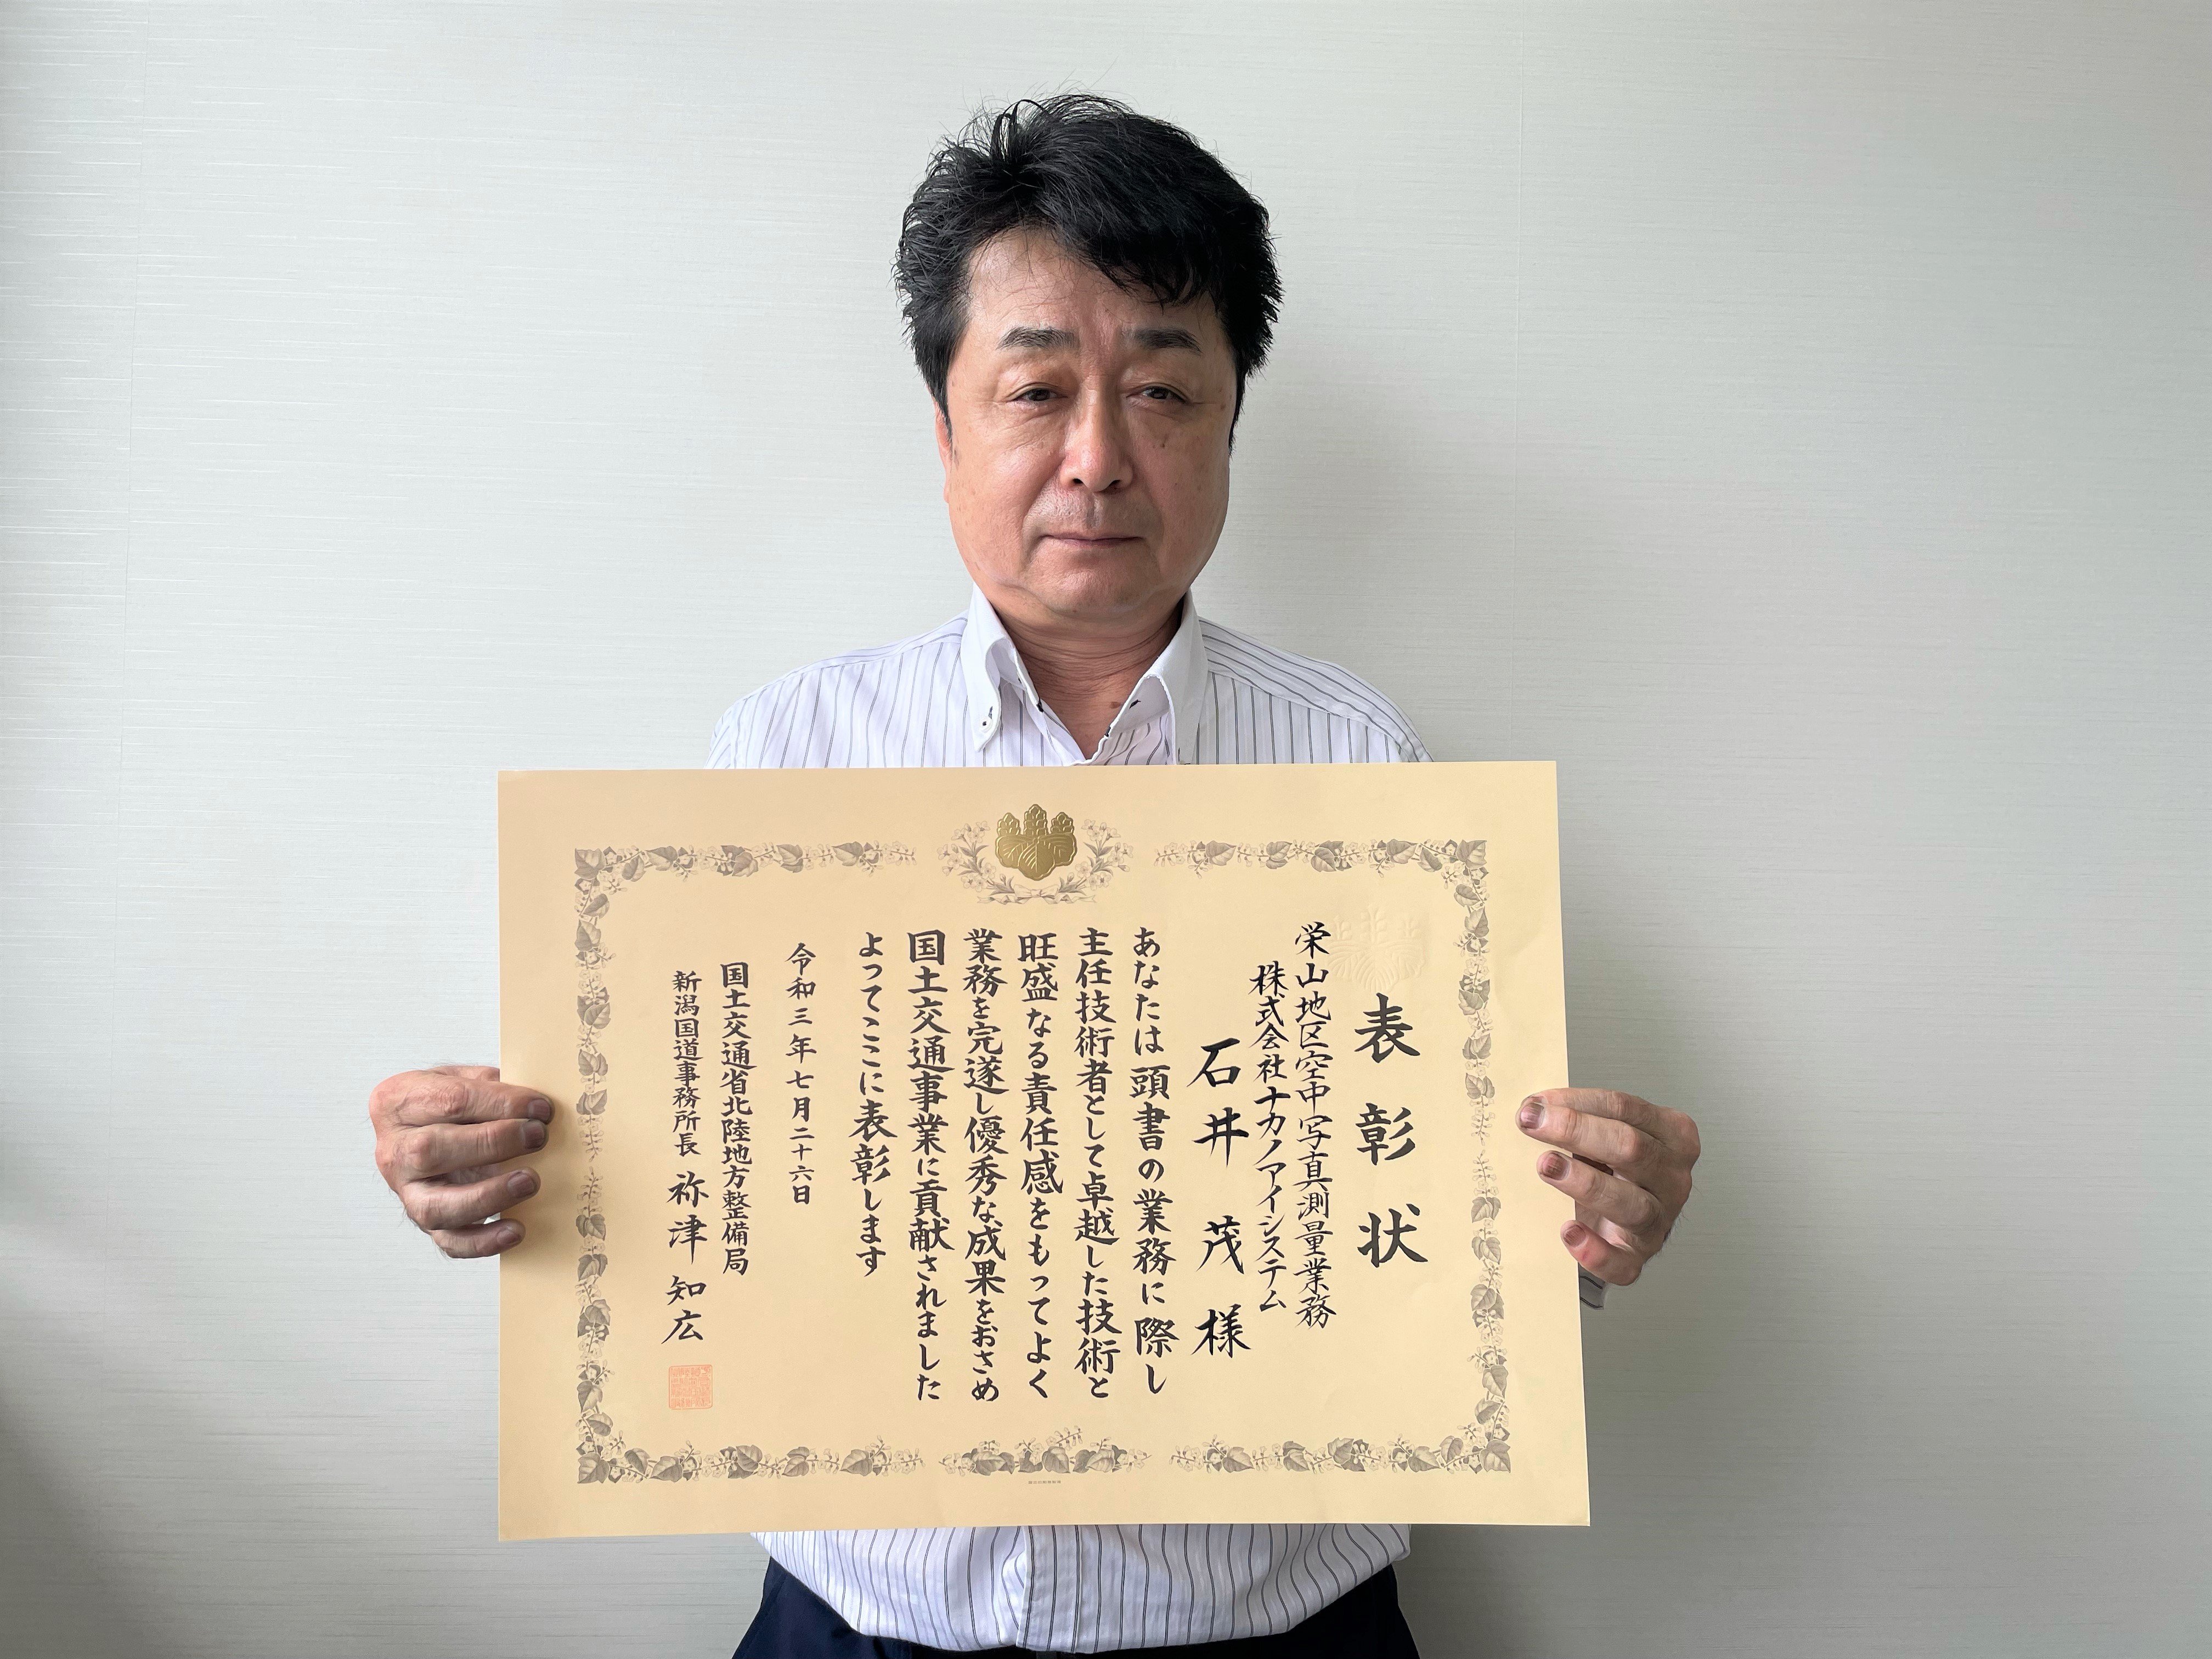 表彰状
栄山地区空中写真測量業務
株式会社ナカノアイシステム
石井茂様
あなたは頭書の業務に際し
主任技術者として卓越した技術と
旺盛なる責任感をもってよく
業務を完遂し優秀な成果をおさめ
国土交通事業に貢献されました
よってここに表彰します
令和三年七月二十六日
国土交通省北陸地方整備局
新潟国道事務所長 祢津知広